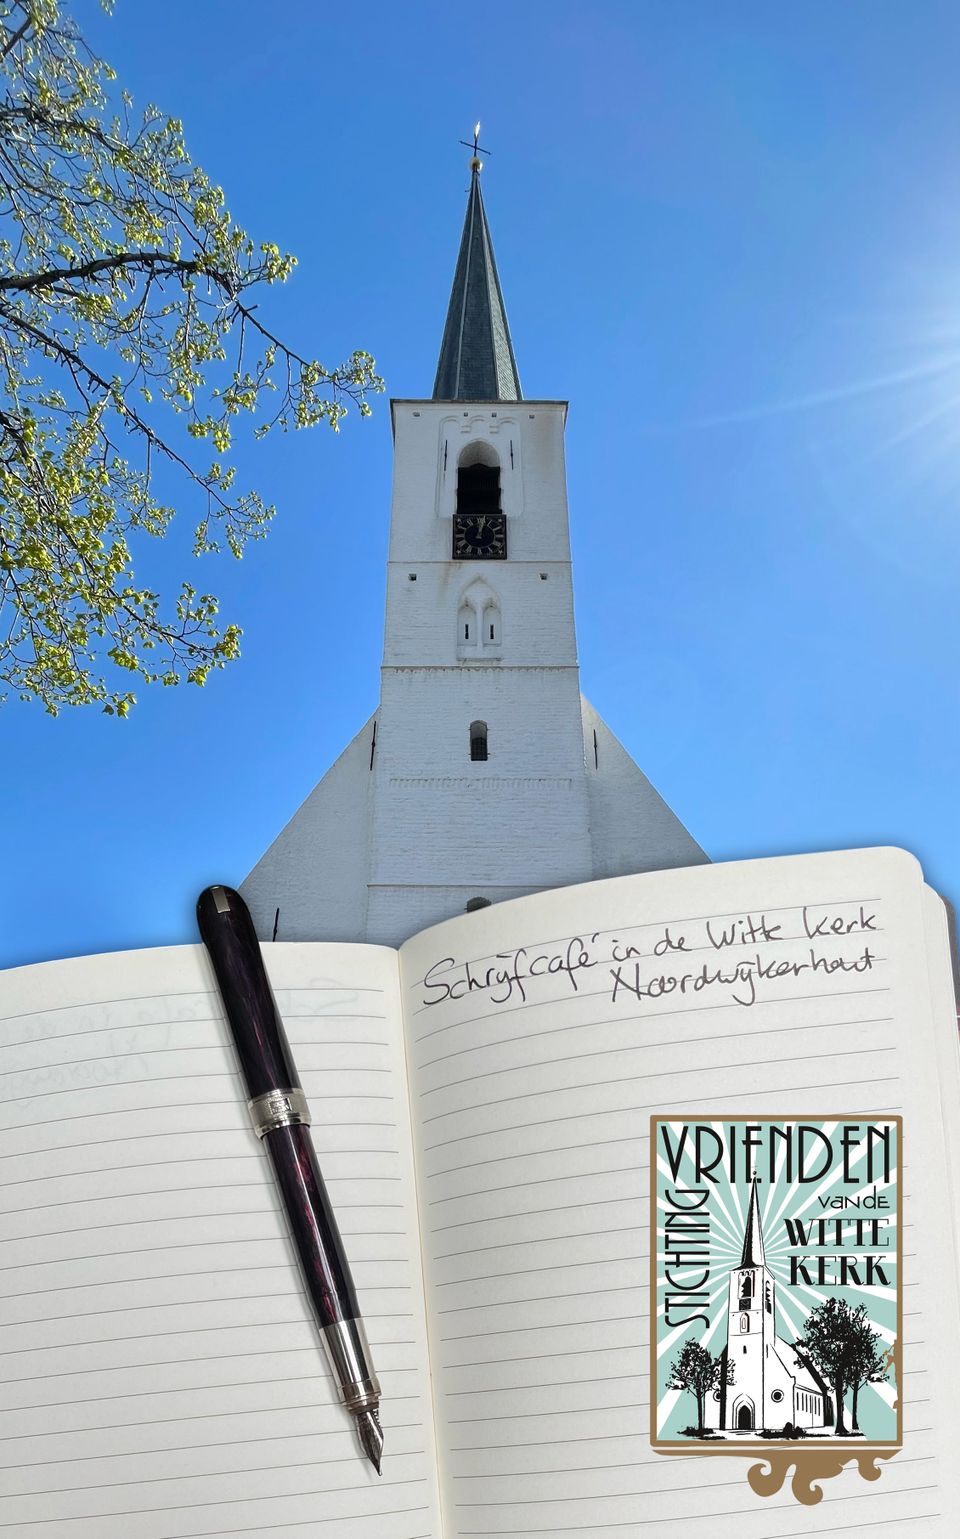 Schrijfcafé in de Witte Kerk
Noordwijkerhout
STICHTING
VRIENDEN
van de
WITTE
KERK